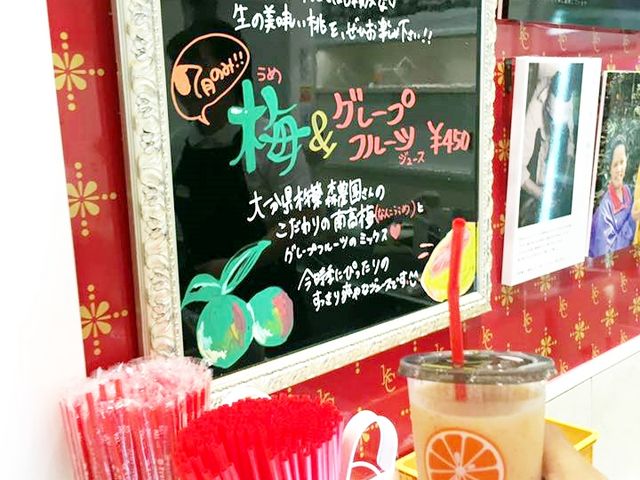 生の美味しい桃を、ぜひお楽しみ下さい!!
7月のみ!!
うめ
梅&グレープ
フルーツ
ジュース
¥450
大分県 森農園さんの
こだわりの南高梅(なんこううめ)と
グレープフルーツのミックス♥
今時季にぴったりの
すっきり爽やかなジュースです